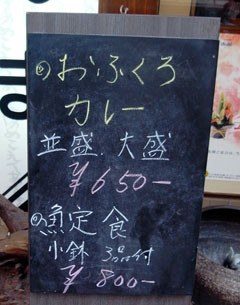 ②おふくろ
カレー
並盛.大盛
¥650-
②魚定食
小鉢 3品付
¥800-